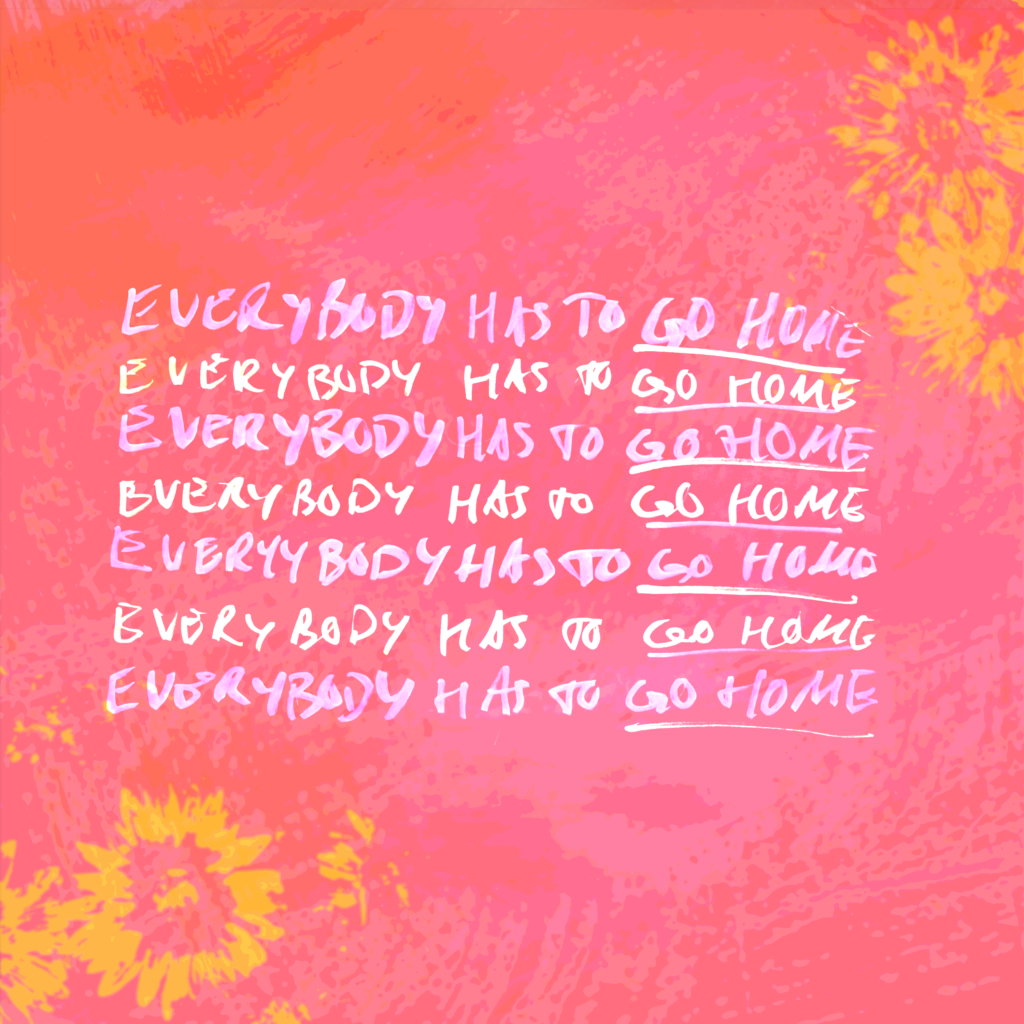 EVERYBODY HAS TO GO HOME
EVERYBODY HAS TO GO HOME
EVERYBODY HAS TO GO HOME
EVERYBODY HAS TO GO HOME
EVERYYBODY HAS TO GO HOME
EVERYBODY HAS TO GO HOME
EVERYBODY HAS TO GO HOME